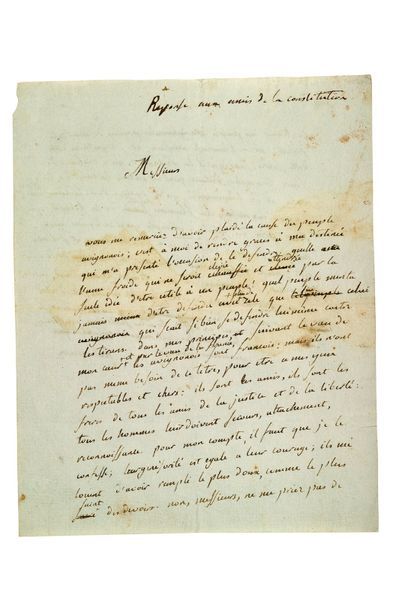 Reponse aux amis de la constitution
Messieurs
vous me remerciez d'avoir plaidé la cause du peuple
avignonais; c'est à moi de rendre graces à ma destinée
qui m'a présenté l'occasion de le défendre. quelle
ame froide qui ne seroit élevée échauffée et attendrie par la
seule idée d'etre utile à un peuple! quel peuple merita
jamais mieux d'etre défendu que celui
qui scait si bien se défendre lui meme contre
les tirans. dans mes principes, et suivant le vœu de
mon cœur et les avignonais sont français; mais ils n'ont
pas meme besoin de ce titre, pour etre à mes yeux
respectables et chers: ils sont les amis, ils sont les
freres de tous les amis de la justice et de la liberté:
tous les hommes leur doivent secours, attachement,
reconnaissance. pour mon compte, il faut que je le
confesse; leur générosité est egale à leur courage; ils me
louent d'avoir rempli le plus doux, comme le plus
sacré des devoirs. non, messieurs, ne me priez pas de